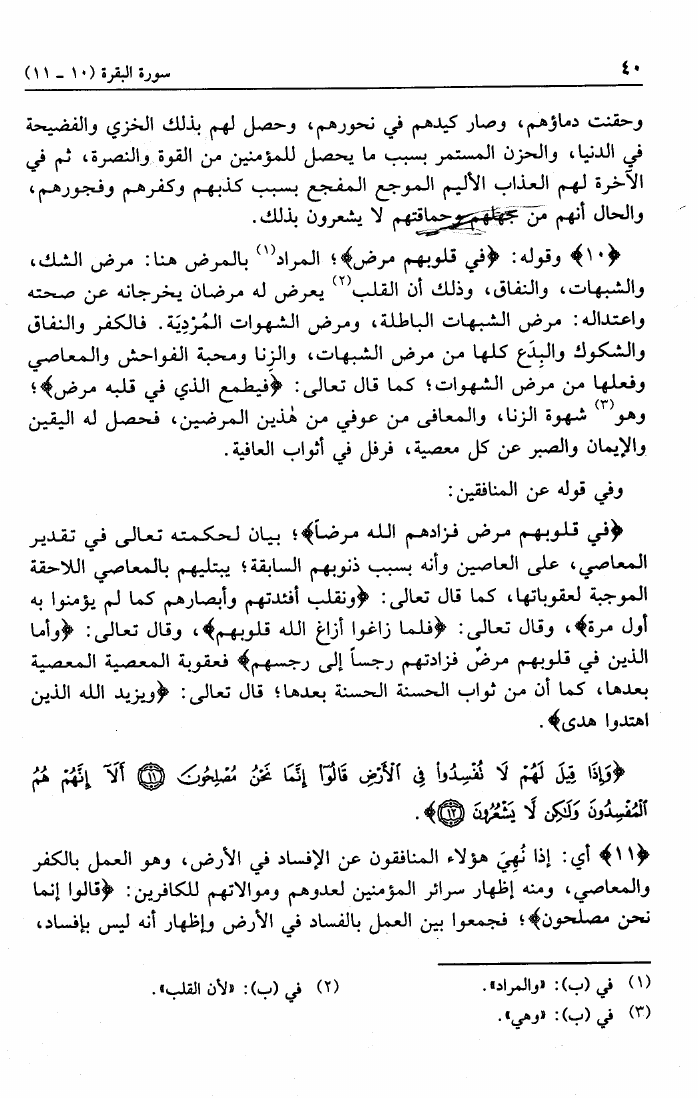 ٤٠
سورة البقرة (١٠ - ١١)
وحقنت دماؤهم، وصار كيدهم في نحورهم، وحصل لهم بذلك الخزي والفضيحة
في الدنيا، والحزن المستمر بسبب ما يحصل للمؤمنين من القوة والنصرة، ثم في
الآخرة لهم العذاب الأليم الموجع المفجع بسبب كذبهم وكفرهم وفجورهم،
والحال أنهم من جهلهم وحماقتهم لا يشعرون بذلك.
﴿١٠﴾ وقوله: ﴿في قلوبهم مرض﴾؛ المراد(١) بالمرض هنا: مرض الشك،
والشبهات، والنفاق، وذلك أن القلب(٢) يعرض له مرضان يخرجانه عن صحته
واعتداله: مرض الشبهات الباطلة، ومرض الشهوات المُرْدِيَة. فالكفر والنفاق
والشكوك والبِدَع كلها من مرض الشبهات، والزِنا ومحبة الفواحش والمعاصي
وفعلها من مرض الشهوات؛ كما قال تعالى: ﴿فيطمع الذي في قلبه مرض﴾؛
وهو(٣) شهوة الزنا، والمعافى من عوفي من هٰذين المرضين، فحصل له اليقين
والإيمان والصبر عن كل معصية، فرفل في أثواب العافية.
وفي قوله عن المنافقين:
﴿في قلوبهم مرض فزادهم الله مرضاً﴾؛ بيان لحكمته تعالى في تقدير
المعاصي، على العاصين وأنه بسبب ذنوبهم السابقة؛ يبتليهم بالمعاصي اللاحقة
الموجبة لعقوباتها، كما قال تعالى: ﴿ونقلب أفئدتهم وأبصارهم كما لم يؤمنوا به
أول مرة﴾، وقال تعالى: ﴿فلما زاغوا أزاغ الله قلوبهم﴾، وقال تعالى: ﴿وأما
الذين في قلوبهم مرضٌ فزادتهم رجساً إلى رجسهم﴾ فعقوبة المعصية المعصية
بعدها، كما أن من ثواب الحسنة الحسنة بعدها؛ قال تعالى: ﴿ويزيد الله الذين
اهتدوا هدى﴾.
﴿وَإِذَا قِيلَ لَهُمْ لَا نُفْسِدُوا۟ فِى ٱلْأَرْضِ قَالُوٓا۟ إِنَّمَا نَحْنُ مُصْلِحُونَ ١١ أَلَآ إِنَّهُمْ هُمُ
ٱلْمُفْسِدُونَ وَلَٰكِن لَّا يَشْعُرُونَ ١٢﴾.
﴿١١﴾ أي: إذا نُهِيَ هؤلاء المنافقون عن الإفساد في الأرض، وهو العمل بالكفر
والمعاصي، ومنه إظهار سرائر المؤمنين لعدوهم وموالاتهم للكافرين: ﴿قالوا إنما
نحن مصلحون﴾؛ فجمعوا بين العمل بالفساد في الأرض وإظهار أنه ليس بإفساد،
(١) في (ب): «والمراد».
(٢) في (ب): «لأن القلب».
(٣) في (ب): «وهي».